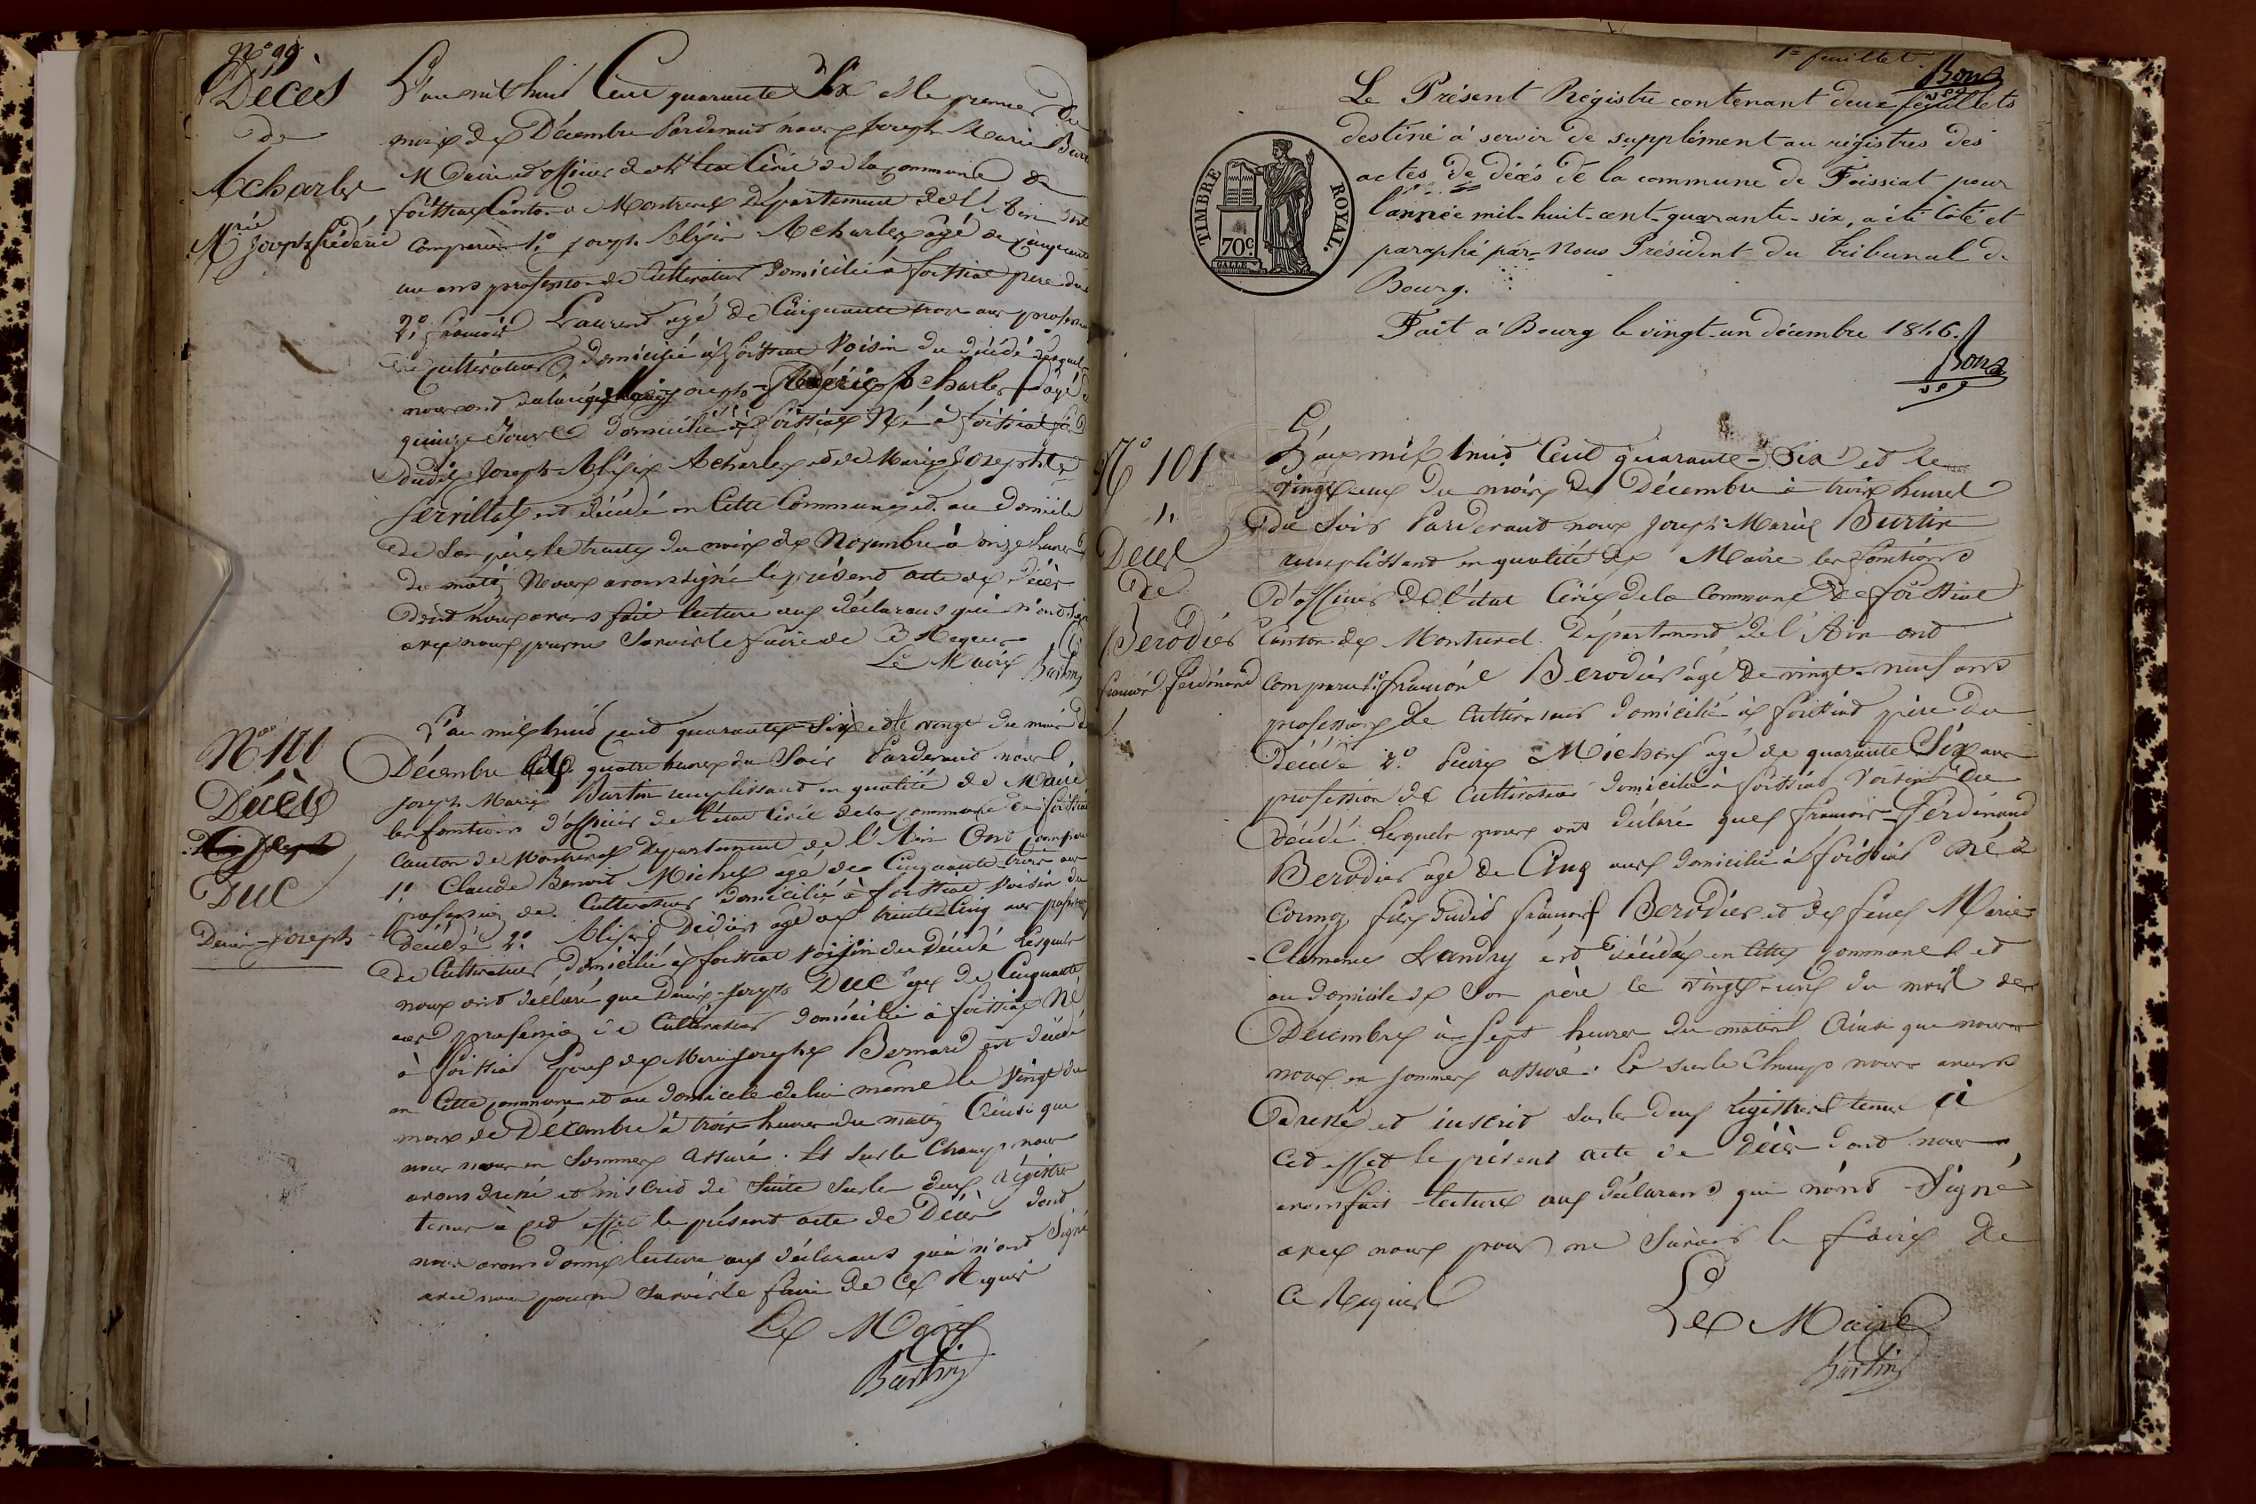 N° 99
Décès
de
Acharles
Mrie Joseph Frédéric
L'an mil huit Cent quarante Six et le premier du
mois de Décembre Pardevant nous Joseph Marie Burtin
Maire et officier de l'état Civil de la commune de
foissiat Canton de Montrevel Département de l'Ain ont
comparu 1° joseph Alexis Acharles agé de cinquante
un ans profession de Cultivateur domicilié à foissiat père du
2° françois Laurent agé de Cinquante trois ans profession
de Cultivateur domicilié à foissiat Voisin du décédé lesquels
nous ont déclaré que Marie joseph Frédéric Acharles agé de
quinze jours domicilié à foissiat Né à foissiat fils
dudit Joseph Alexis Acharles et de Marie Josephte
Servillat est décédé en Cette Commune et au domicile
de Son père le trente du mois de Novembre à onze heures
du matin Nous avons signé le présent acte de décès
dont nous avons fait lecture aux déclarans qui n'ont signé
avec nous pour ne Savoir le faire de Ce Requis
Le Maire Burtin
N° 100
Décès
de
Duc
Denis-Joseph
L'an mil huit cent quarante Six et le vingt du mois de
Décembre à quatre heures du Soir Pardevant nous
Joseph Marie Burtin remplissant en qualité de Maire
les fonctions d'officier de l'état Civil de la commune de foissiat
Canton de Montrevel Département de l'Ain Ont comparu
1° Claude Benoit Michel agé de Cinquante trois ans
profession de Cultivateur domicilié à foissiat Voisin du
décédé 2° Alexis Didier agé de trente Cinq ans profession
de Cultivateur domicilié à foissiat Voisin du Décédé Lesquels
nous ont déclaré que Denis-Joseph Duc agé de Cinquante
ans profession de Cultivateur domicilié à foissiat Né
à foissiat Epoux de Marie Josephe Bernard est décédé
en Cette commune et au domicile de lui même le Vingt du
mois de Décembre à trois heures du matin Ainsi que
nous nous en Sommes Assuré. Et Sur le Champ nous
avons dressé et inscrit de Suite Sur les deux régistres
tenus à cet effet le présent acte de Décès dont
nous avons donné lecture aux déclarans qui n'ont Signé
avec nous pour ne Savoir le faire de Ce Requis
Le Maire
Burtin
1er feuillet. Bon
Le Présent Régistre contenant deux feuillets
destiné à servir de supplément au régistres des
actes de décès de la commune de Foissiat pour
l'année mil-huit-cent-quarante-six, a été coté et
paraphé par Nous Président du tribunal de
Bourg.
Fait à Bourg le vingt-un décembre 1846.
Bon
TIMBRE ROYAL.
70c
N° 101
Décès
de
Berodier
francois Ferdinand
L'an mil huit Cent quarante-Six et le
vingt-un du mois de Décembre à trois heures
du Soir Pardevant nous Joseph Marie Burtin
remplissant en qualité de Maire les fonctions
d'officier de l'état Civil de la Commune de foissiat
Canton de Montrevel Département de l'Ain ont
Comparu 1° françois Berodier agé de vingt-neuf ans
profession de Cultivateur domicilié à foissiat père du
décédé 2° Pierre Michon agé de quarante Six ans
profession de Cultivateur domicilié à foissiat Voisin du
décédé Lesquels nous ont déclaré que francois-Ferdinand
Berodier agé de Cinq ans domicilié à foissiat Né à
Cormoz fils dudit francois Berodier et de feue Marie-
-Clemence Landry est décédé en Cette commune et
au domicile de Son père le vingt-un du mois de
Décembre à Sept heures du matin Ainsi que nous
nous en Sommes assuré. Et sur le Champ nous avons
Dressé et inscrit sur les deux régistres tenus à
Cet effet le présent acte de Décès dont nous
avons fait lecture aux déclarans qui n'ont Signé
avec nous pour ne Savoir le faire de
Ce Requis
Le Maire
Burtin